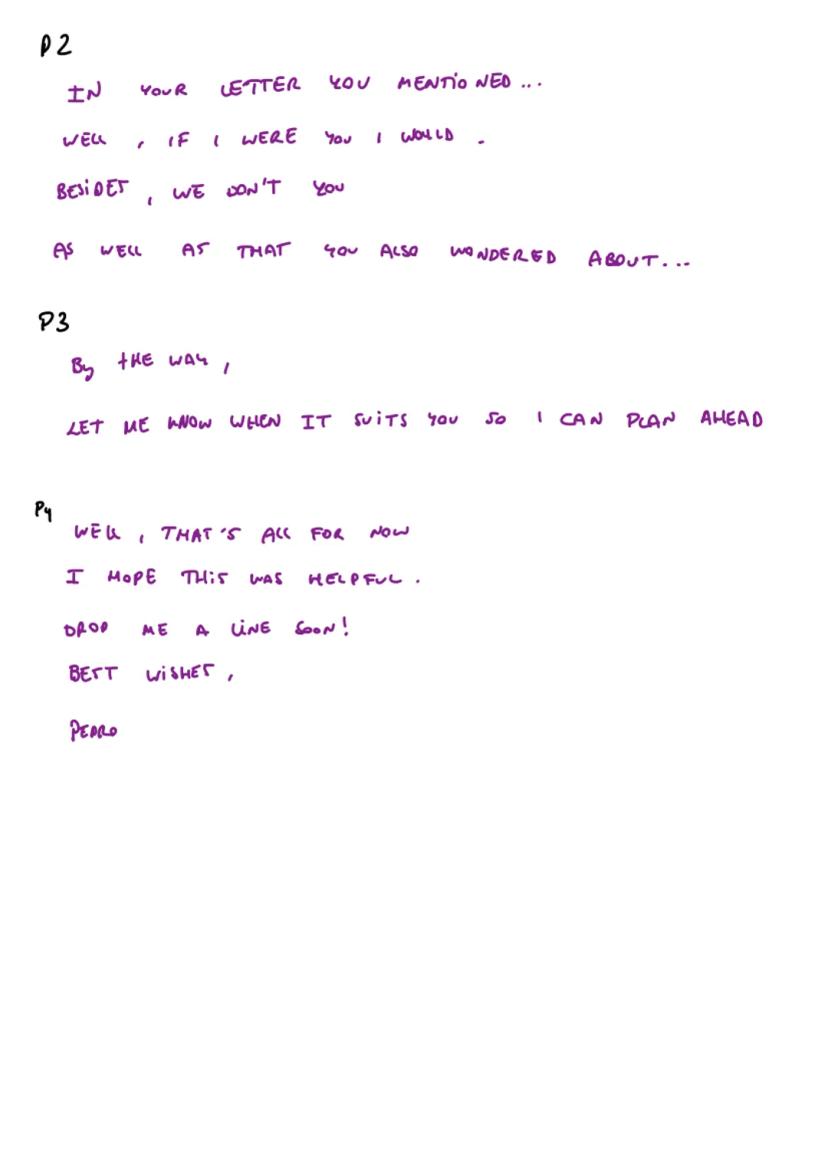 P2
IN YOUR LETTER YOU MENTIONED...
WELL, IF I WERE YOU I WOULD.
BESIDES, WE DON'T YOU
AS WELL AS THAT YOU ALSO WONDERED ABOUT...
P3
By tHE WAY,
LET ME KNOW WHEN IT SUITS YOU SO I CAN PLAN AHEAD
P4
WELL, THAT'S ALL FOR NOW
I HOPE THIS WAS HELPFUL.
DROP ME A LINE SOON!
BEST WISHES,
PEDRO